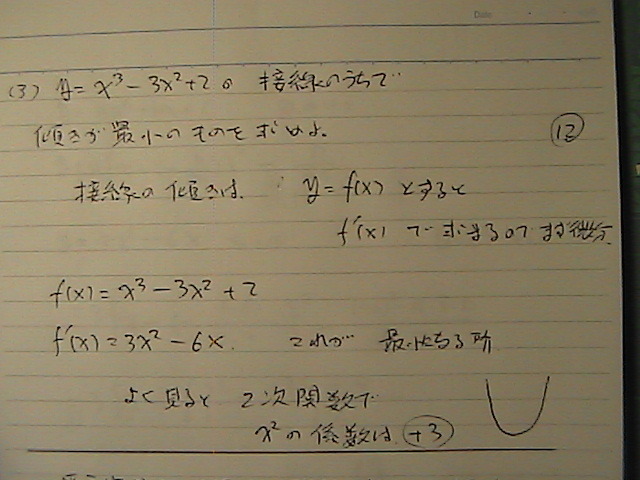 Date
(3) y = x³ - 3x² + 2 の 接線のうちで
傾きが最小のものを求めよ。 12
接線の傾きは、 y = f(x) とすると
f'(x) で求まるので まず微分
f(x) = x³ - 3x² + 2
f'(x) = 3x² - 6x. これが 最小になる所
よく見ると 2次関数で
x²の係数は +3